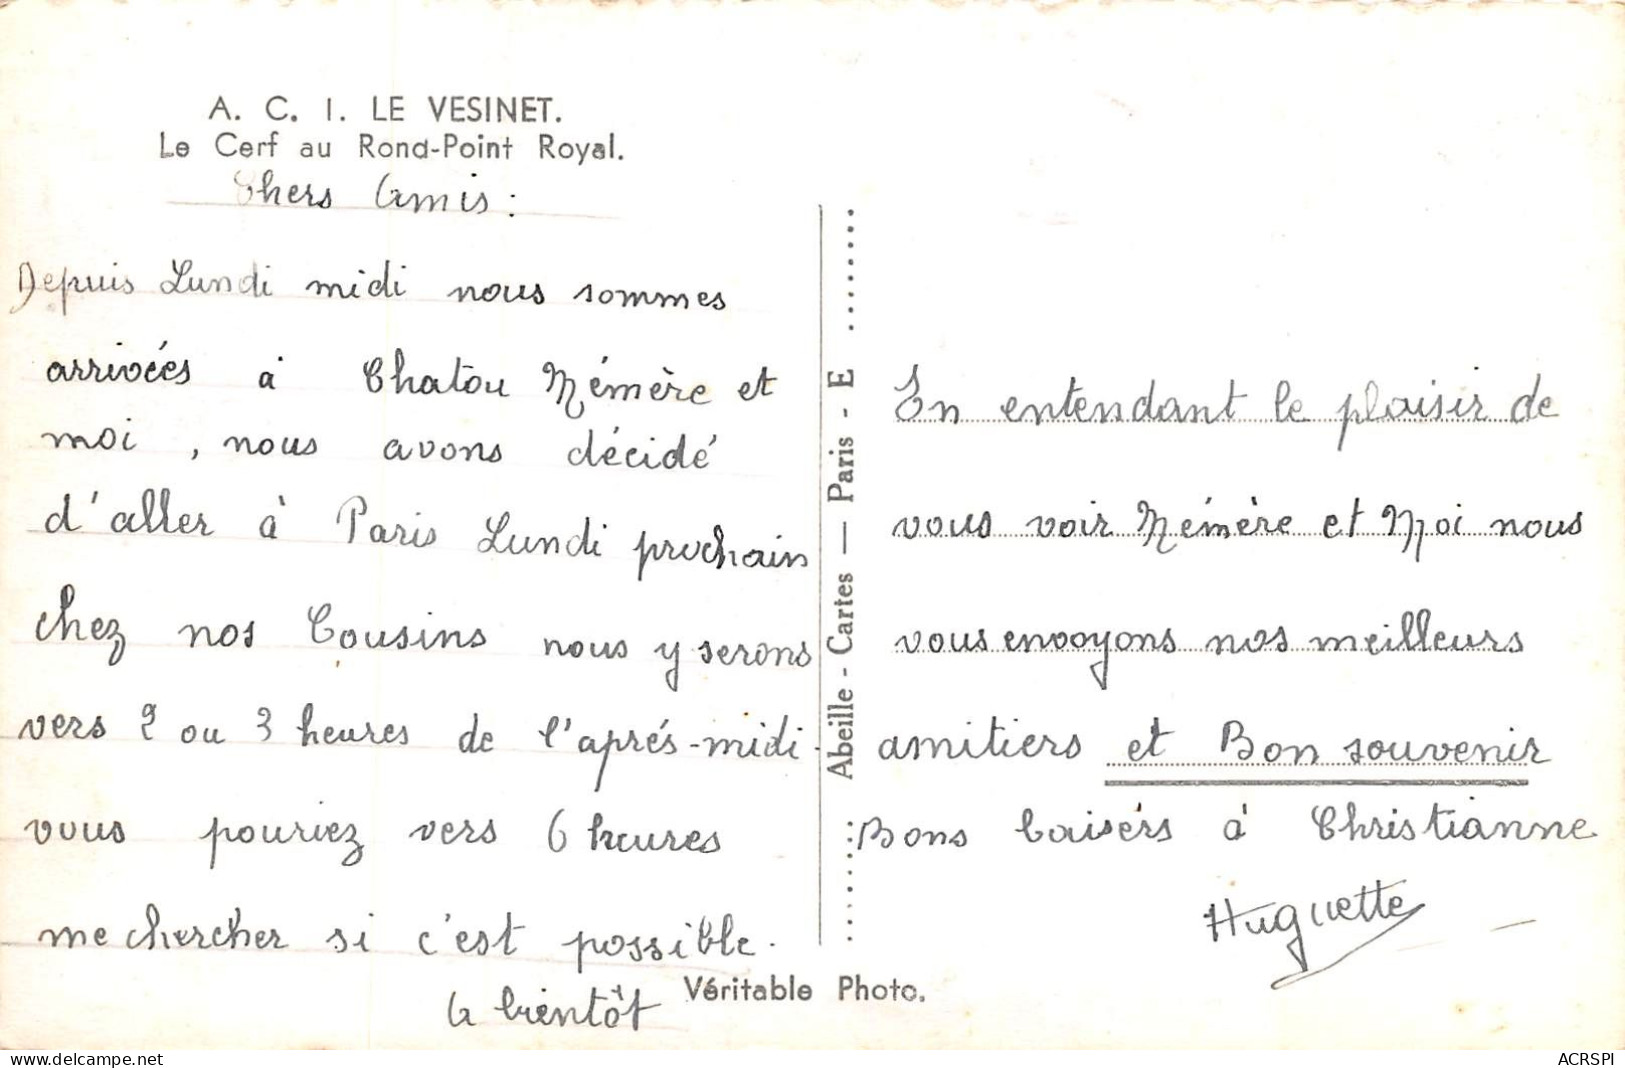 A. C. I. LE VESINET.
Le Cerf au Rond-Point Royal.
Chers Amis :
Depuis Lundi midi nous sommes
arrivées à Chatou Mémère et
moi , nous avons décidé
d'aller à Paris Lundi prochain
chez nos Cousins nous y serons
vers 2 ou 3 heures de l'aprés-midi.
vous pouriez vers 6 heures
me chercher si c'est possible.
A bientôt
Véritable Photo.
Abeille - Cartes — Paris - E
En entendant le plaisir de
vous voir Mémère et Moi nous
vous envoyons nos meilleurs
amitiers et Bon souvenir
Bons baisérs à Christianne
Huguette
ACRSPI